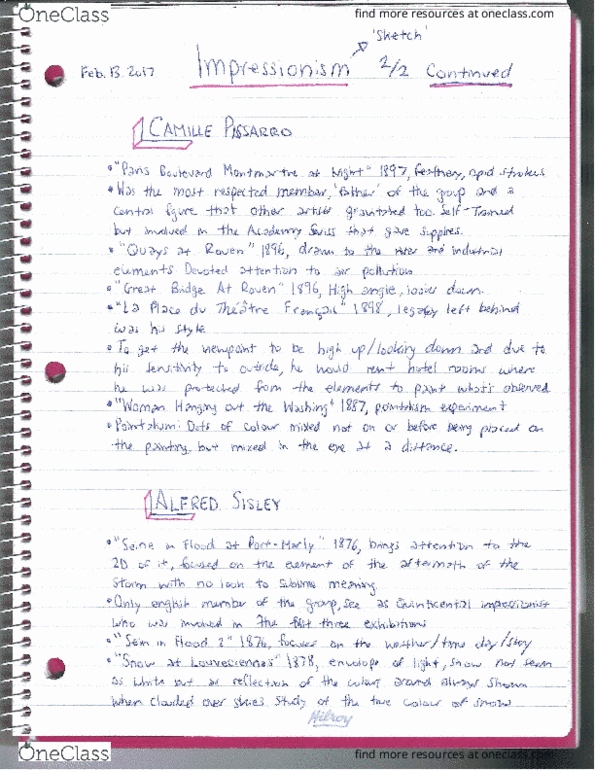 OneClass
find more resources at oneclass.com
'Sketch'
Feb. 13. 2017 Impressionism 2/2 Continued
CAMILLE PISSARRO
• "Paris Boulevard Montmartre at Night" 1897, feathery, rapid strokes
• Was the most respected member, 'father' of the group and a
central figure that other artists too. Self-Trained
but involved in the Academy Suiss that gave supplies.
• "Quays at Roven" 1896, drawn to the and industrial
elements Devoted attention to air pollution
• "Great Bridge At Roven" 1896, High angle, looks down.
• "La Place du Théâtre Français" 1898, legacy left behind
was his style
• To get the viewpoint to be high up/looking down and due to
his sensitivity to outside, he would rent hotel rooms where
he was protected from the elements to paint what's observed
• "Woman Hanging out the Washing" 1887, pointilism experiment
• Pointalism: Dots of colour mixed not on or before being placed on
the painting, but mixed in the eye at a distance.
ALFRED SISLEY
• "Seine in Flood at Port-Marly" 1876, brings attention to the
2D of it, focused on the element of the aftermath of the
storm with no look to sublime meaning
• Only english member of the group, see as impressionist
who was involved in the first three exhibitions
• in Flood 2" 1876, focuses on the weather/time day/story
• "Snow at Louveciennes" 1878, envelope of light, snow not seen
as white but as reflection of the colours around always shown
when clouded over skies. Study of the true colour of snow
Hilroy
OneClass
find more resources at oneclass.com